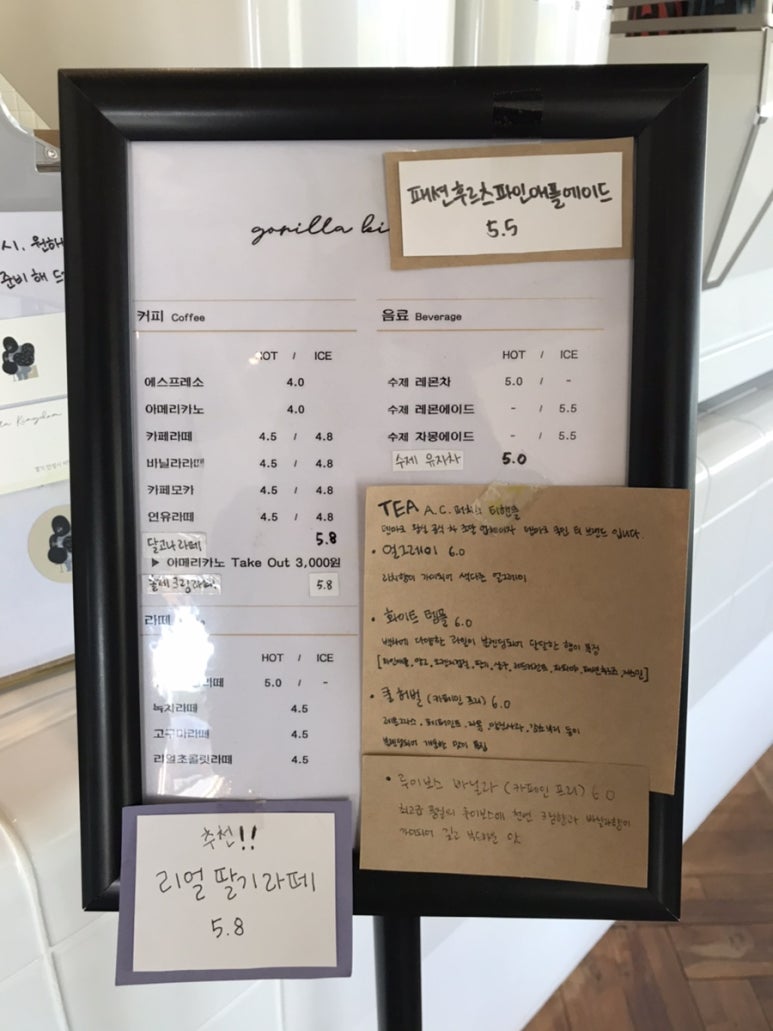 패션후르츠파인애플에이드
5.5
gorilla ki
시. 원하
준비해 드
커피 Coffee
HOT / ICE
에스프레소 4.0
아메리카노 4.0
카페라떼 4.5 / 4.8
바닐라라떼 4.5 / 4.8
카페모카 4.5 / 4.8
연유라떼 4.5 / 4.8
달고나라떼 5.8
▶ 아메리카노 Take Out 3,000원
5.8
라떼
HOT / ICE
라떼 5.0 / -
녹차라떼 4.5
고구마라떼 4.5
리얼초콜릿라떼 4.5
음료 Beverage
HOT / ICE
수제 레몬차 5.0 / -
수제 레몬에이드 - / 5.5
수제 자몽에이드 - / 5.5
수제 유자차 5.0
TEA A.C. 퍼치스 티핸들
덴마크 왕실 공식 차 조달 업체이자 덴마크 국민 티 브랜드 입니다.
• 얼그레이 6.0
가미되어 색다른 얼그레이
• 화이트 템플 6.0
백차에 다양한 과일이 블렌딩되어 달달한 향이 특징
• 쿨 허벌 (카페인 프리) 6.0
레몬그라스, 페퍼민트, 감초뿌리 등이
블렌딩되어 개운한 맛이 특징
• 루이보스 바닐라 (카페인 프리) 6.0
최고급 품질의 루이보스에 천연 크림향과 바닐라향이
가미되어 깊고 부드러운 맛
추천!!
리얼 딸기라떼
5.8